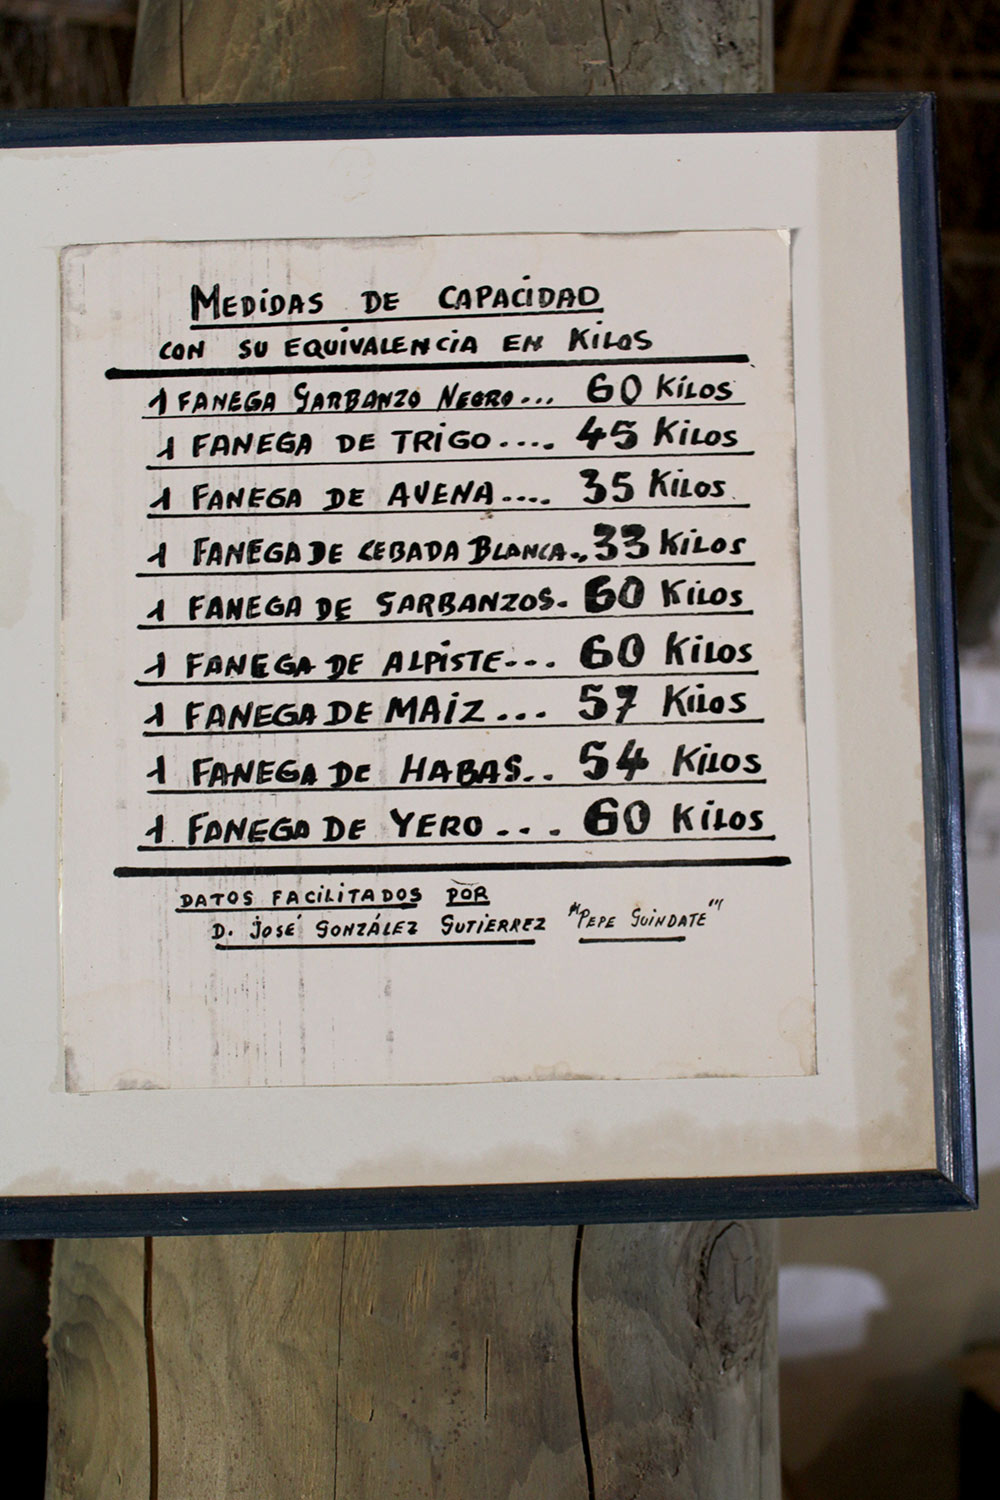 MEDIDAS DE CAPACIDAD
CON SU EQUIVALENCIA EN KILOS
1 FANEGA GARBANZO NEGRO... 60 KILOS
1 FANEGA DE TRIGO.... 45 KILOS
1 FANEGA DE AVENA.... 35 KILOS
1 FANEGA DE CEBADA BLANCA.. 33 KILOS
1 FANEGA DE GARBANZOS. 60 KILOS
1 FANEGA DE ALPISTE... 60 KILOS
1 FANEGA DE MAIZ ... 57 KILOS
1 FANEGA DE HABAS.. 54 KILOS
1 FANEGA DE YERO ... 60 KILOS
DATOS FACILITADOS POR
D. JOSÉ GONZÁLEZ GUTIERREZ "PEPE GUINDATE"